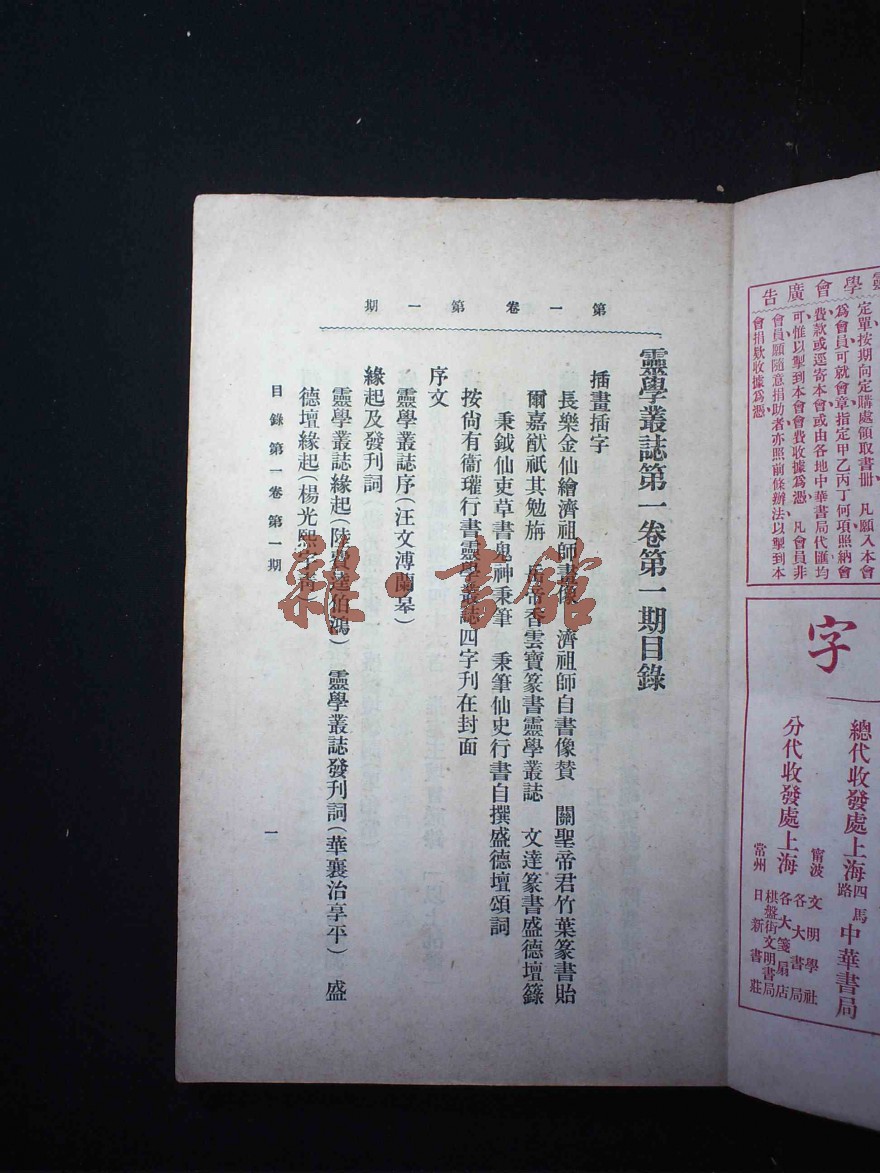 第一卷第一期
靈學叢誌第一卷第一期目錄
插畫插字
長樂金仙繪濟祖師畫像　濟祖師自書像贊　關聖帝君竹葉篆書貽
爾嘉猷祇其勉旃　岳帝香雲寶篆書靈學叢誌　文達篆書盛德壇籙
秉鉞仙吏草書鬼神秉筆　秉筆仙史行書自撰盛德壇頌詞
按尙有衞瓘行書靈學叢誌四字刊在封面
序文
靈學叢誌序(汪文溥蘭皋)
緣起及發刊詞
靈學叢誌緣起(陸費逵伯鴻)　靈學叢誌發刊詞(華襄治享平)　盛
德壇緣起(楊光熙宇青)
目錄第一卷第一期
一
雜·書館
靈學會廣告
定單按期向定購處領取書册　凡願入本會
爲會員可就會章指定甲乙丙丁何項照納會
費款或逕寄本會或由各地中華書局代匯均
可惟以掣到本會會費收據爲憑　凡會員非
會員願隨意捐助者亦照前條辦法以掣到本
會捐欵收據爲憑
字
總代收發處上海四馬路中華書局
分代收發處上海
各大書局
各大箋扇店
棋盤街文明書局
甯波文明學社
常州日新書莊